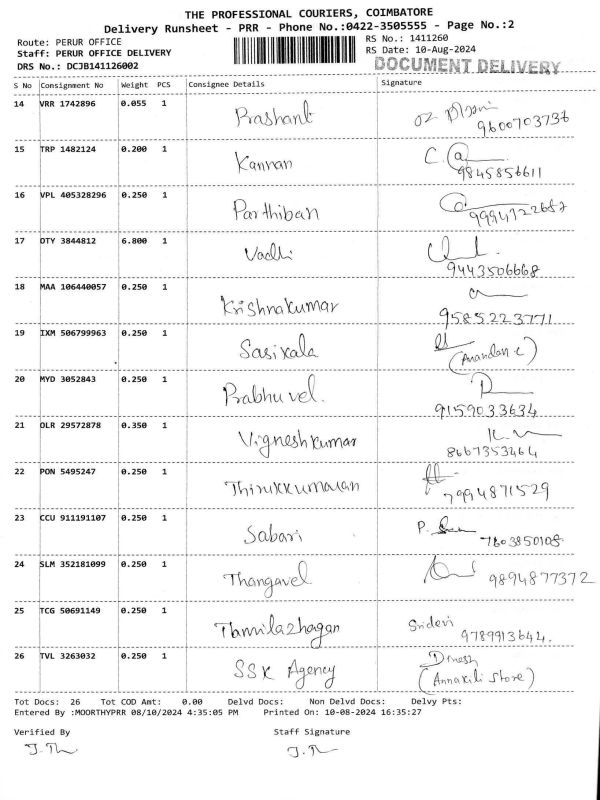 THE PROFESSIONAL COURIERS, COIMBATORE
Delivery Runsheet - PRR - Phone No.:0422-3505555 - Page No.:2
Route: PERUR OFFICE RS No.: 1411260
Staff: PERUR OFFICE DELIVERY RS Date: 10-Aug-2024
DRS No.: DCJB141126002 DOCUMENT DELIVERY
S No Consignment No Weight PCS Consignee Details Signature
14 VRR 1742896 0.055 1 Prashant
9600703736
15 TRP 1482124 0.200 1 Kannan
9845856611
16 VPL 405328296 0.250 1 Parthiban
9994722687
17 OTY 3844812 6.800 1 Vadhi
9443506668
18 MAA 106440057 0.250 1 Krishnakumar
9585223771
19 IXM 506799963 0.250 1 Sasikala
(Anandan c)
20 MYD 3052843 0.250 1 Prabhu vel.
9159033634
21 OLR 29572878 0.350 1 Vigneshkumar
8667353464
22 PON 5495247 0.250 1 Thirukkumaran
7994871529
23 CCU 911191107 0.250 1 Sabari P.
7603850108
24 SLM 352181099 0.250 1 Thangavel
9894877372
25 TCG 50691149 0.250 1 Thamilazhagan Sridevi
9789913644.
26 TVL 3263032 0.250 1 SSK Agency Dinesh
(Annakili store)
Tot Docs: 26 Tot COD Amt: 0.00 Delvd Docs: Non Delvd Docs: Delvy Pts:
Entered By :MOORTHYPRR 08/10/2024 4:35:05 PM Printed On: 10-08-2024 16:35:27
Verified By Staff Signature